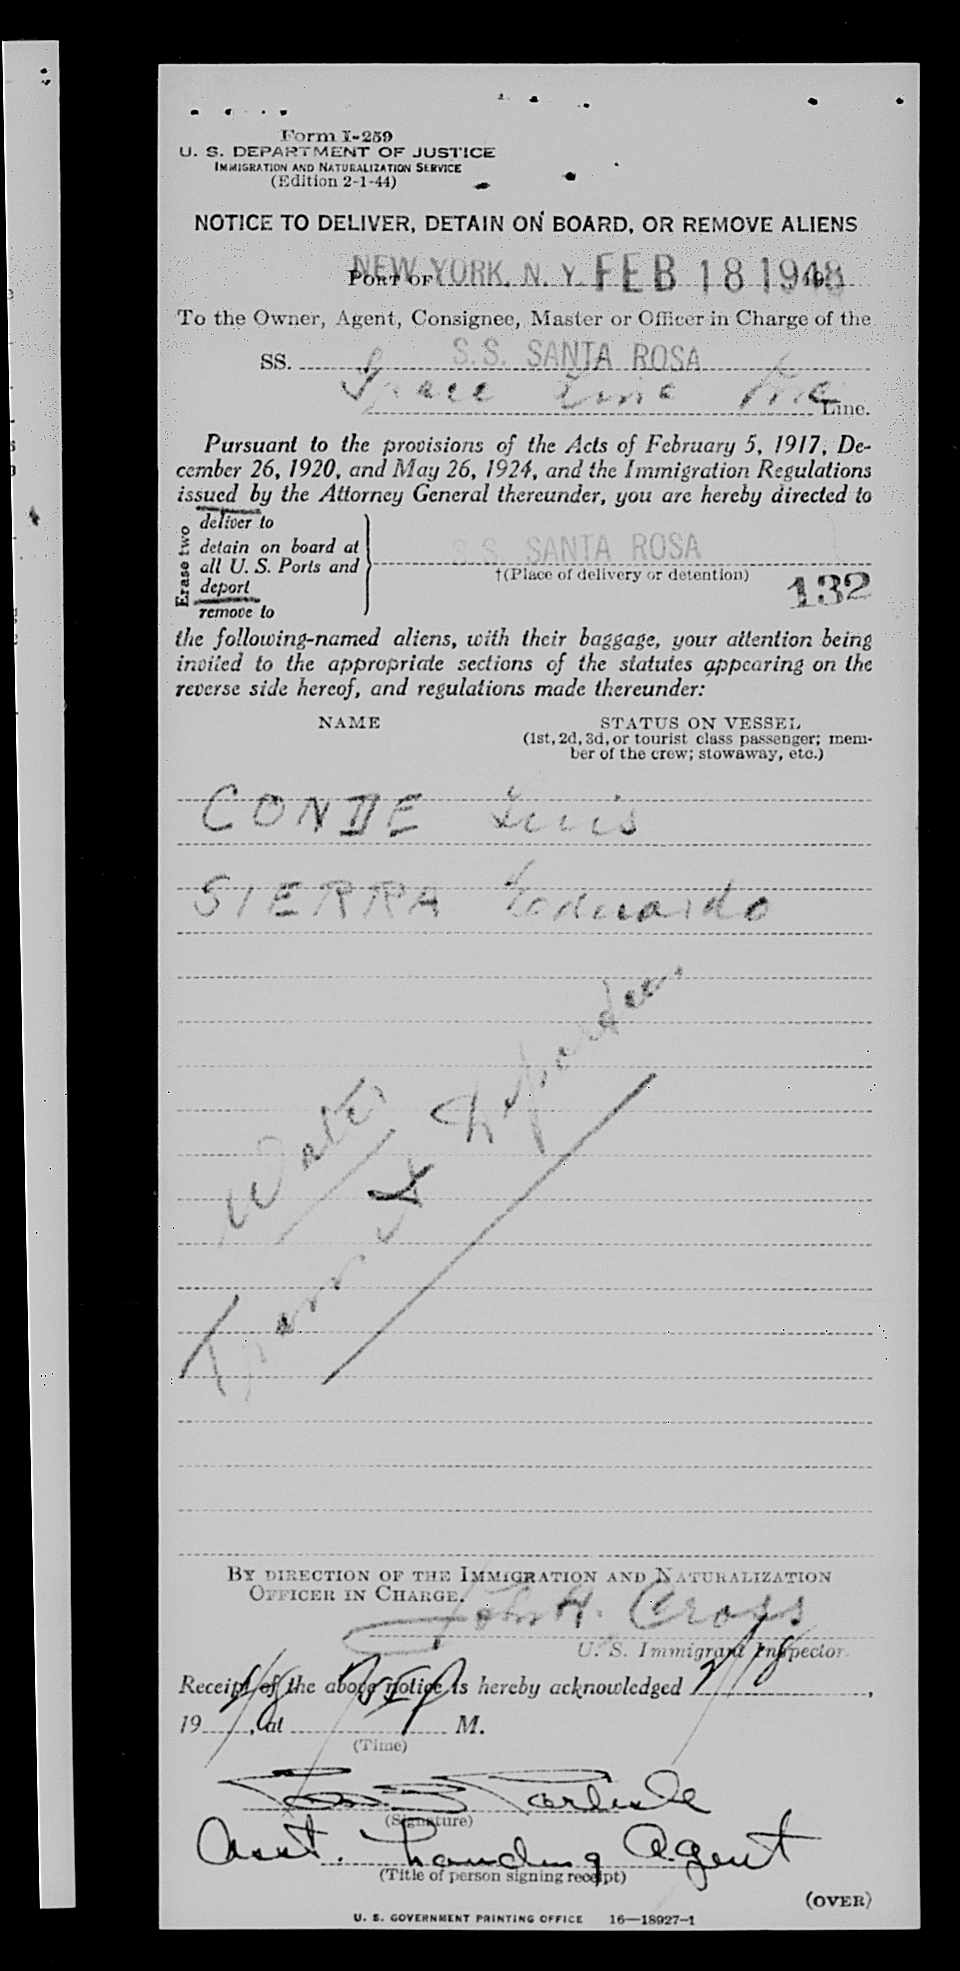 Form I-259
U. S. DEPARTMENT OF JUSTICE
IMMIGRATION AND NATURALIZATION SERVICE
(Edition 2-1-44)
NOTICE TO DELIVER, DETAIN ON BOARD, OR REMOVE ALIENS
PORT OF NEW YORK, N. Y. FEB 18 1948
To the Owner, Agent, Consignee, Master or Officer in Charge of the
SS. S.S. SANTA ROSA
Grace Line Inc Line.
Pursuant to the provisions of the Acts of February 5, 1917, De-
cember 26, 1920, and May 26, 1924, and the Immigration Regulations
issued by the Attorney General thereunder, you are hereby directed to
Erase two
deliver to
detain on board at
all U. S. Ports and
deport
remove to
S.S. SANTA ROSA
†(Place of delivery or detention)
132
the following-named aliens, with their baggage, your attention being
invited to the appropriate sections of the statutes appearing on the
reverse side hereof, and regulations made thereunder:
NAME STATUS ON VESSEL
(1st, 2d, 3d, or tourist class passenger; mem-
ber of the crew; stowaway, etc.)
CONDE Luis
SIERRA Eduardo
By DIRECTION OF THE IMMIGRATION AND NATURALIZATION
OFFICER IN CHARGE.
John H. Cross
U. S. Immigrant Inspector.
Receipt of the above notice is hereby acknowledged 2/18,
1948, at M.
(Time)
Carlisle
(Signature)
Asst. Landing Agent
(Title of person signing receipt)
(OVER)
U. S. GOVERNMENT PRINTING OFFICE 16—18927-1